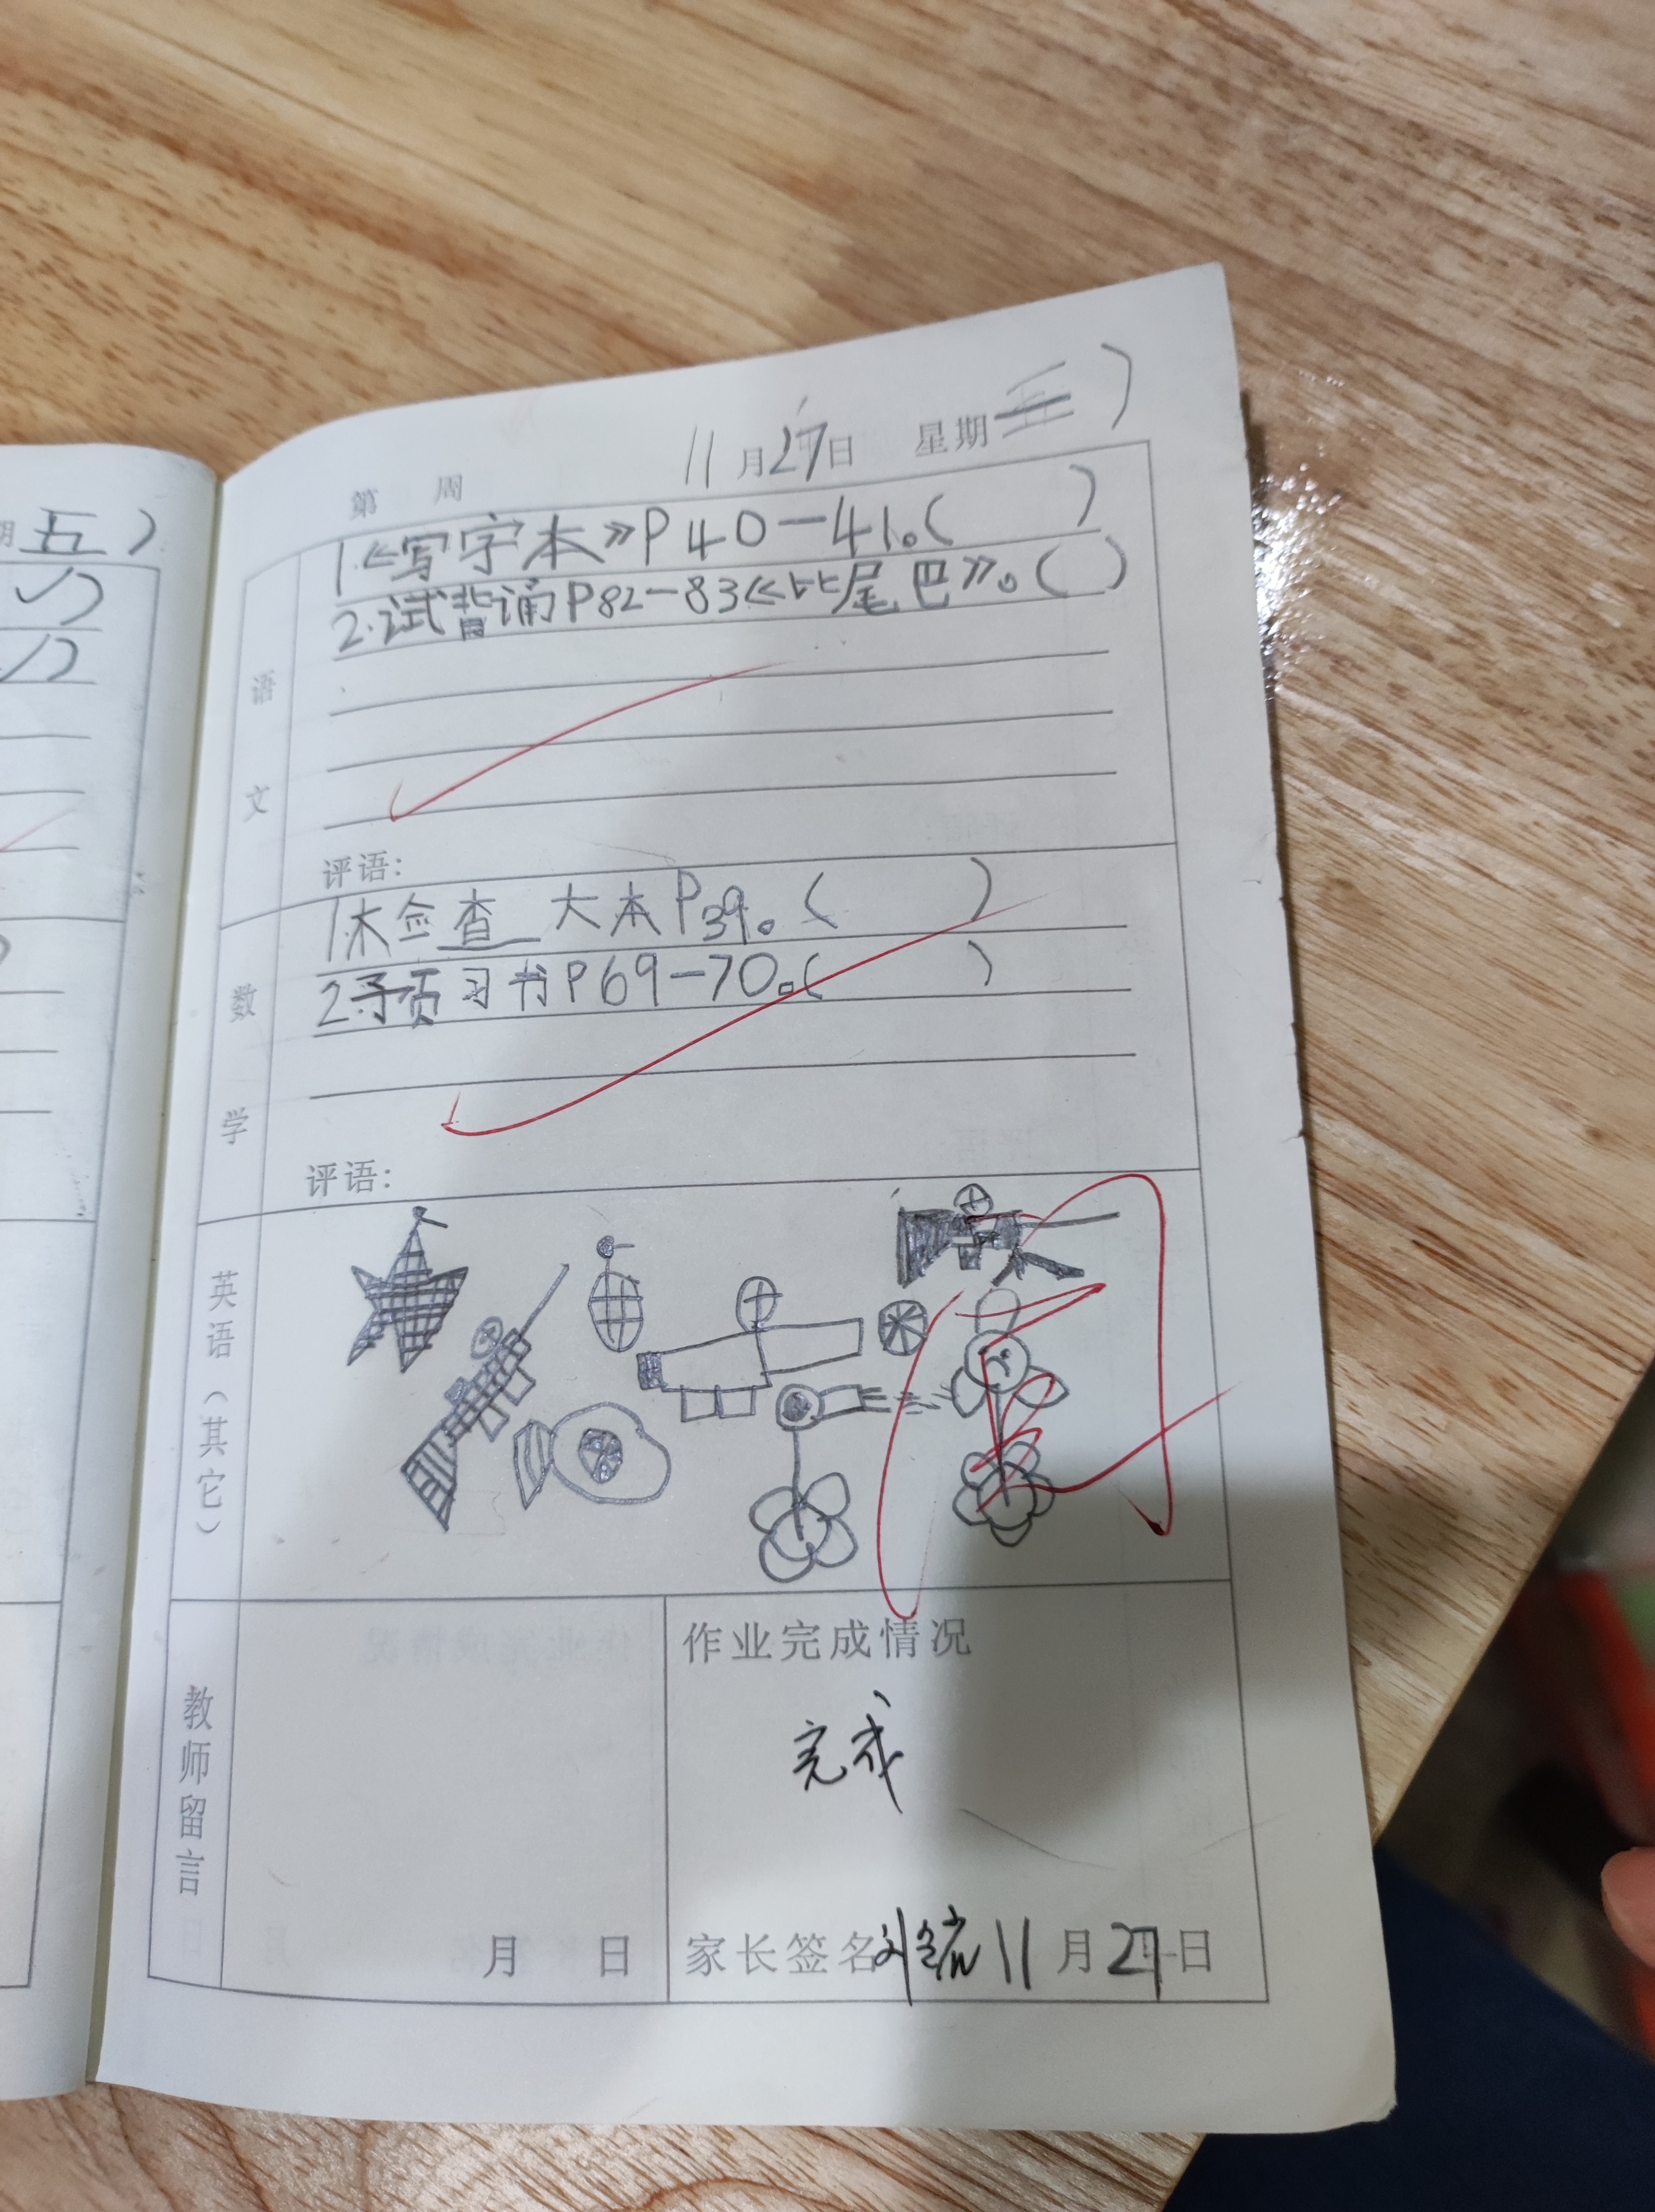 期五）
第 周 11月27日 星期 ）
语文
1.《写字本》P40—41。（ ）
2.试背诵P82—83《比尾巴》。（ ）
评语：
数学
1.检查 大本P39。（ ）
2.预习书P69—70。（ ）
评语：
英语（其它）
教师留言
月 日
作业完成情况
完成
家长签名 11月27日